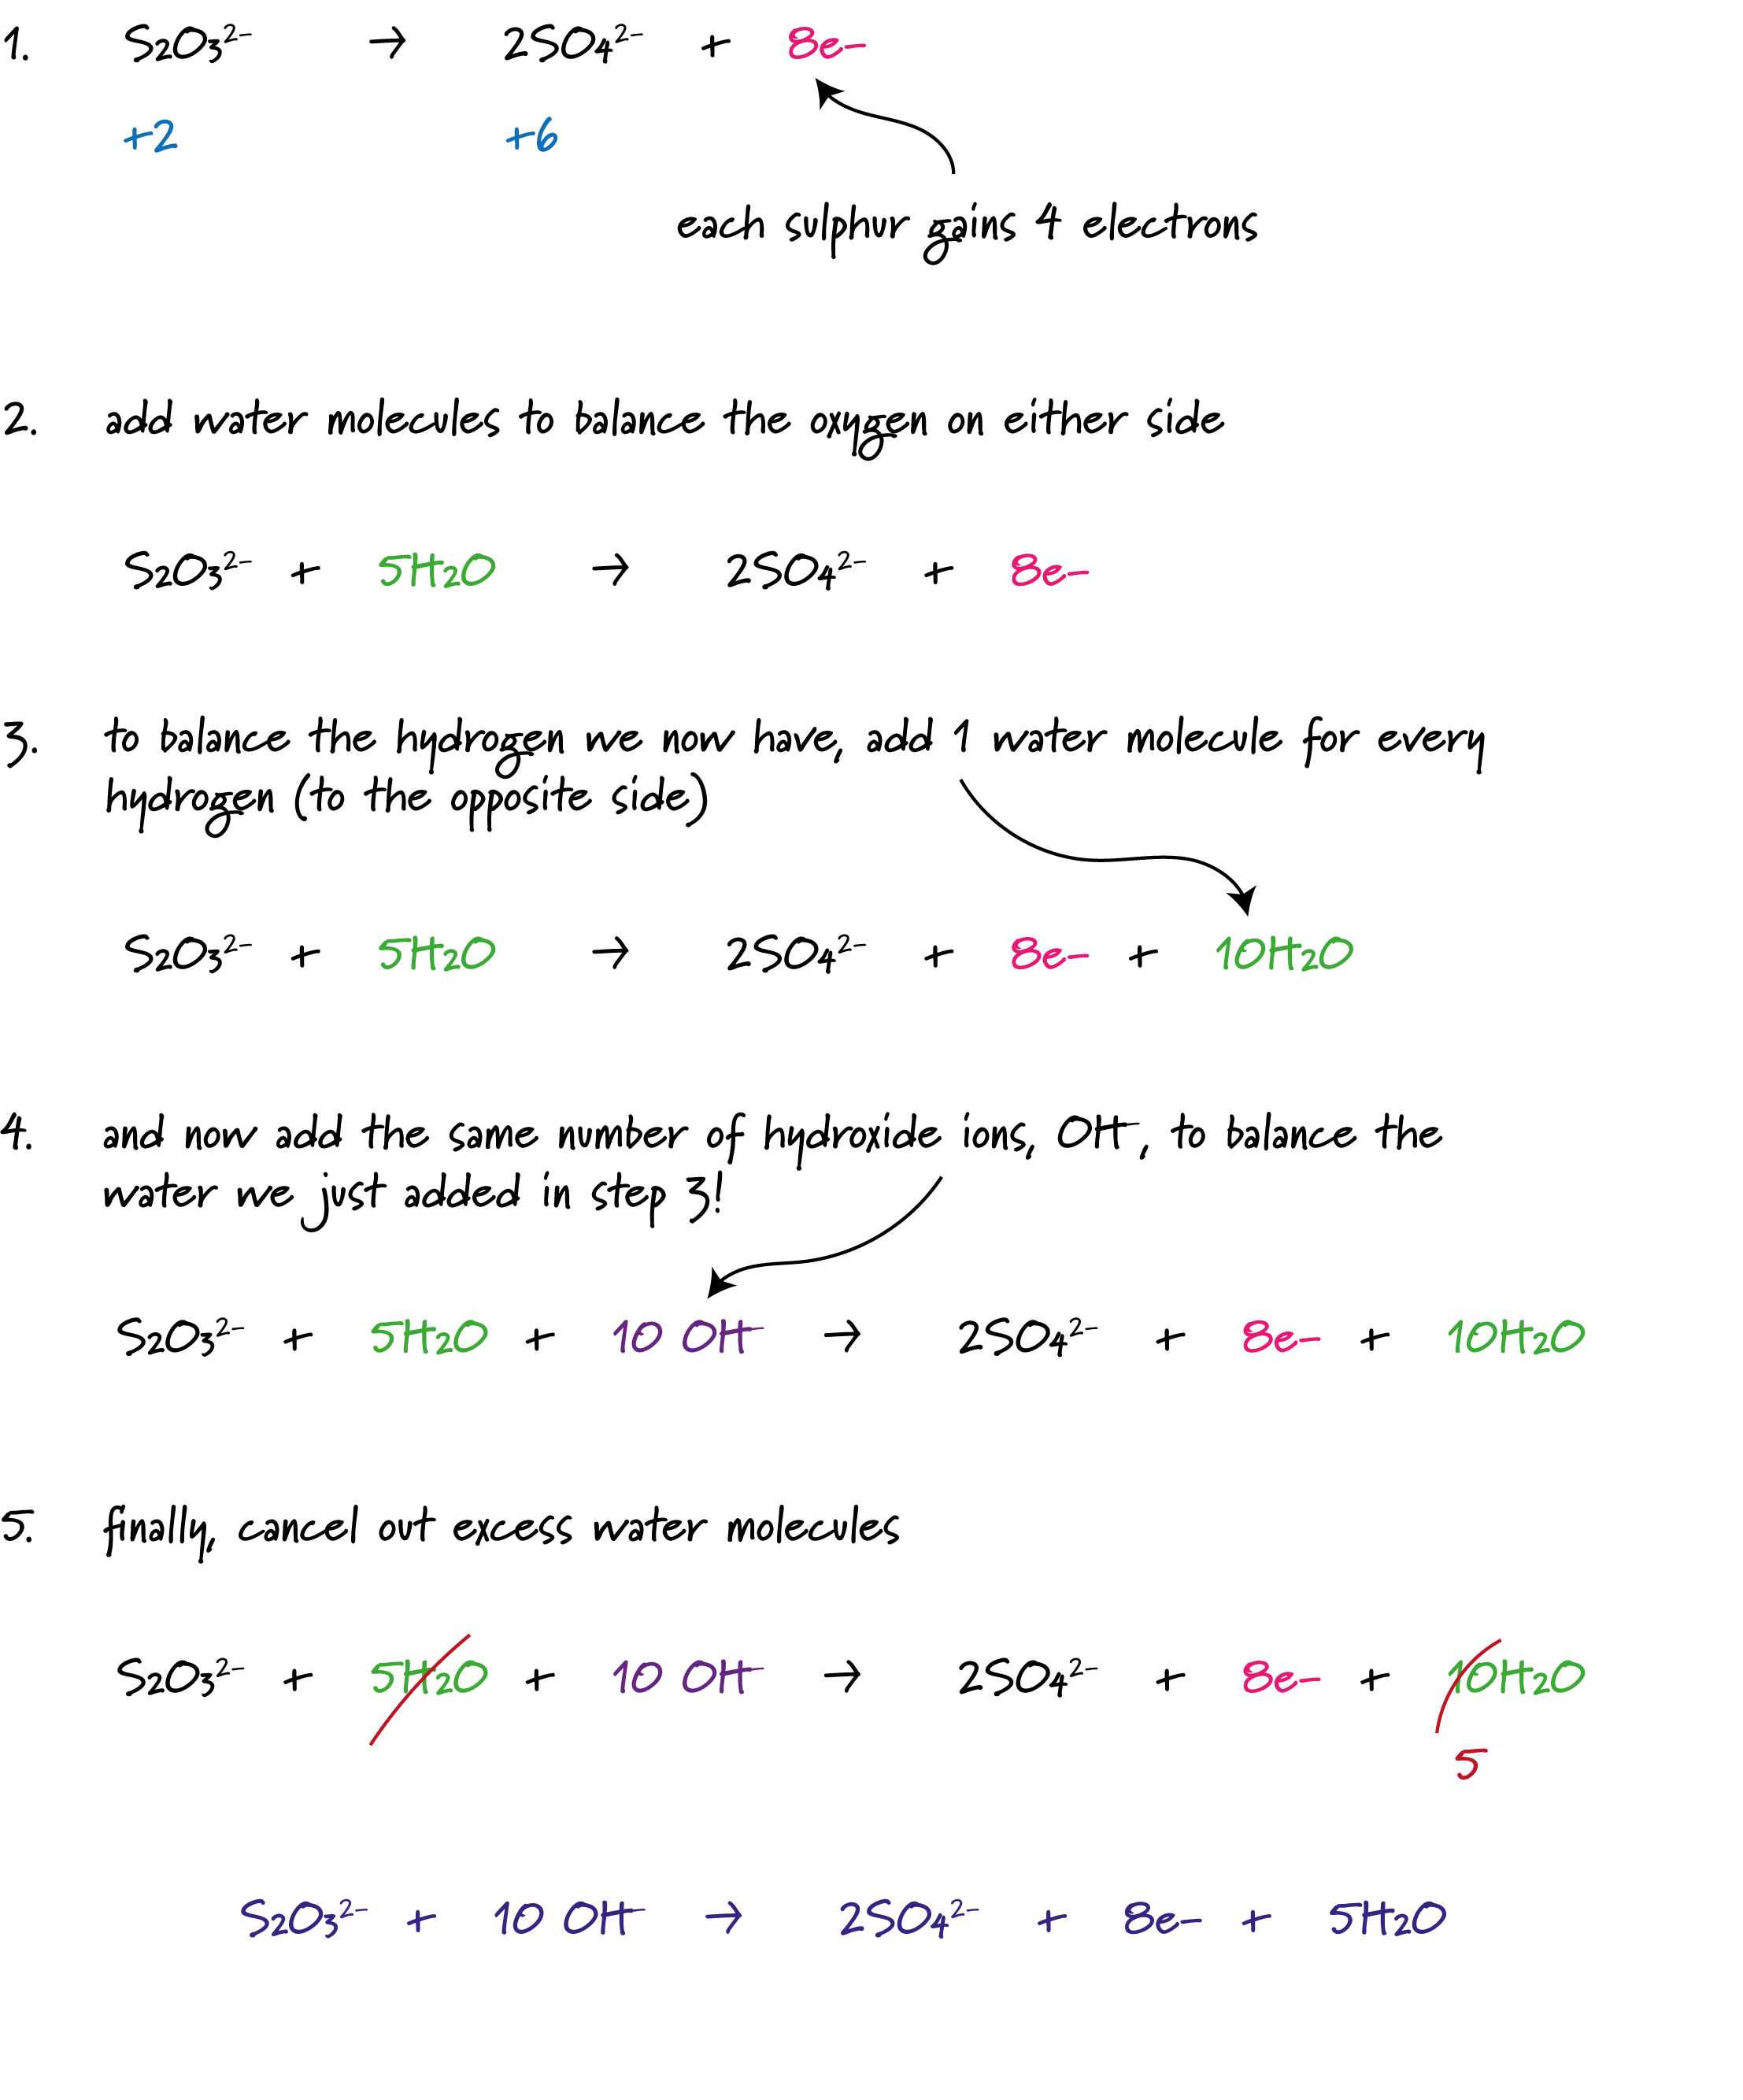 1. S₂O₃²⁻ → 2SO₄²⁻ + 8e-
+2 +6
each sulphur gains 4 electrons
2. add water molecules to balance the oxygen on either side
S₂O₃²⁻ + 5H₂O → 2SO₄²⁻ + 8e-
3. to balance the hydrogen we now have, add 1 water molecule for every
hydrogen (to the opposite side)
S₂O₃²⁻ + 5H₂O → 2SO₄²⁻ + 8e- + 10H₂O
4. and now add the same number of hydroxide ions, OH⁻, to balance the
water we just added in step 3!
S₂O₃²⁻ + 5H₂O + 10 OH⁻ → 2SO₄²⁻ + 8e- + 10H₂O
5. finally, cancel out excess water molecules
S₂O₃²⁻ + 5H₂O + 10 OH⁻ → 2SO₄²⁻ + 8e- + 10H₂O
5
S₂O₃²⁻ + 10 OH⁻ → 2SO₄²⁻ + 8e- + 5H₂O